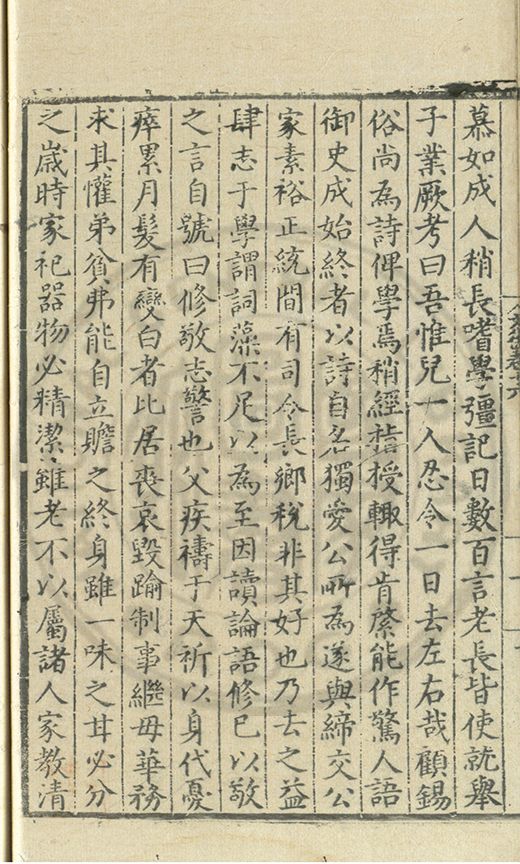 慕如成人稍長嗜學彊記日數百言老長皆使就舉
子業厥考曰吾惟兒一人忍令一日去左右哉顧錫
俗尚為詩俾學焉稍經指授輙得肯綮能作驚人語
御史成始終者以詩自名獨愛公所為遂與締交公
家素裕正統間有司令長鄉稅非其好也乃去之益
肆志于學謂詞藻不足以為至因讀論語修已以敬
之言自號曰修敬志警也父疾禱于天祈以身代憂
瘁累月髮有變白者比居喪哀毀踰制事繼母華務
求其懽弟貧弗能自立贍之終身雖一味之甘必分
之歲時家祀器物必精潔雖老不以屬諸人家教清